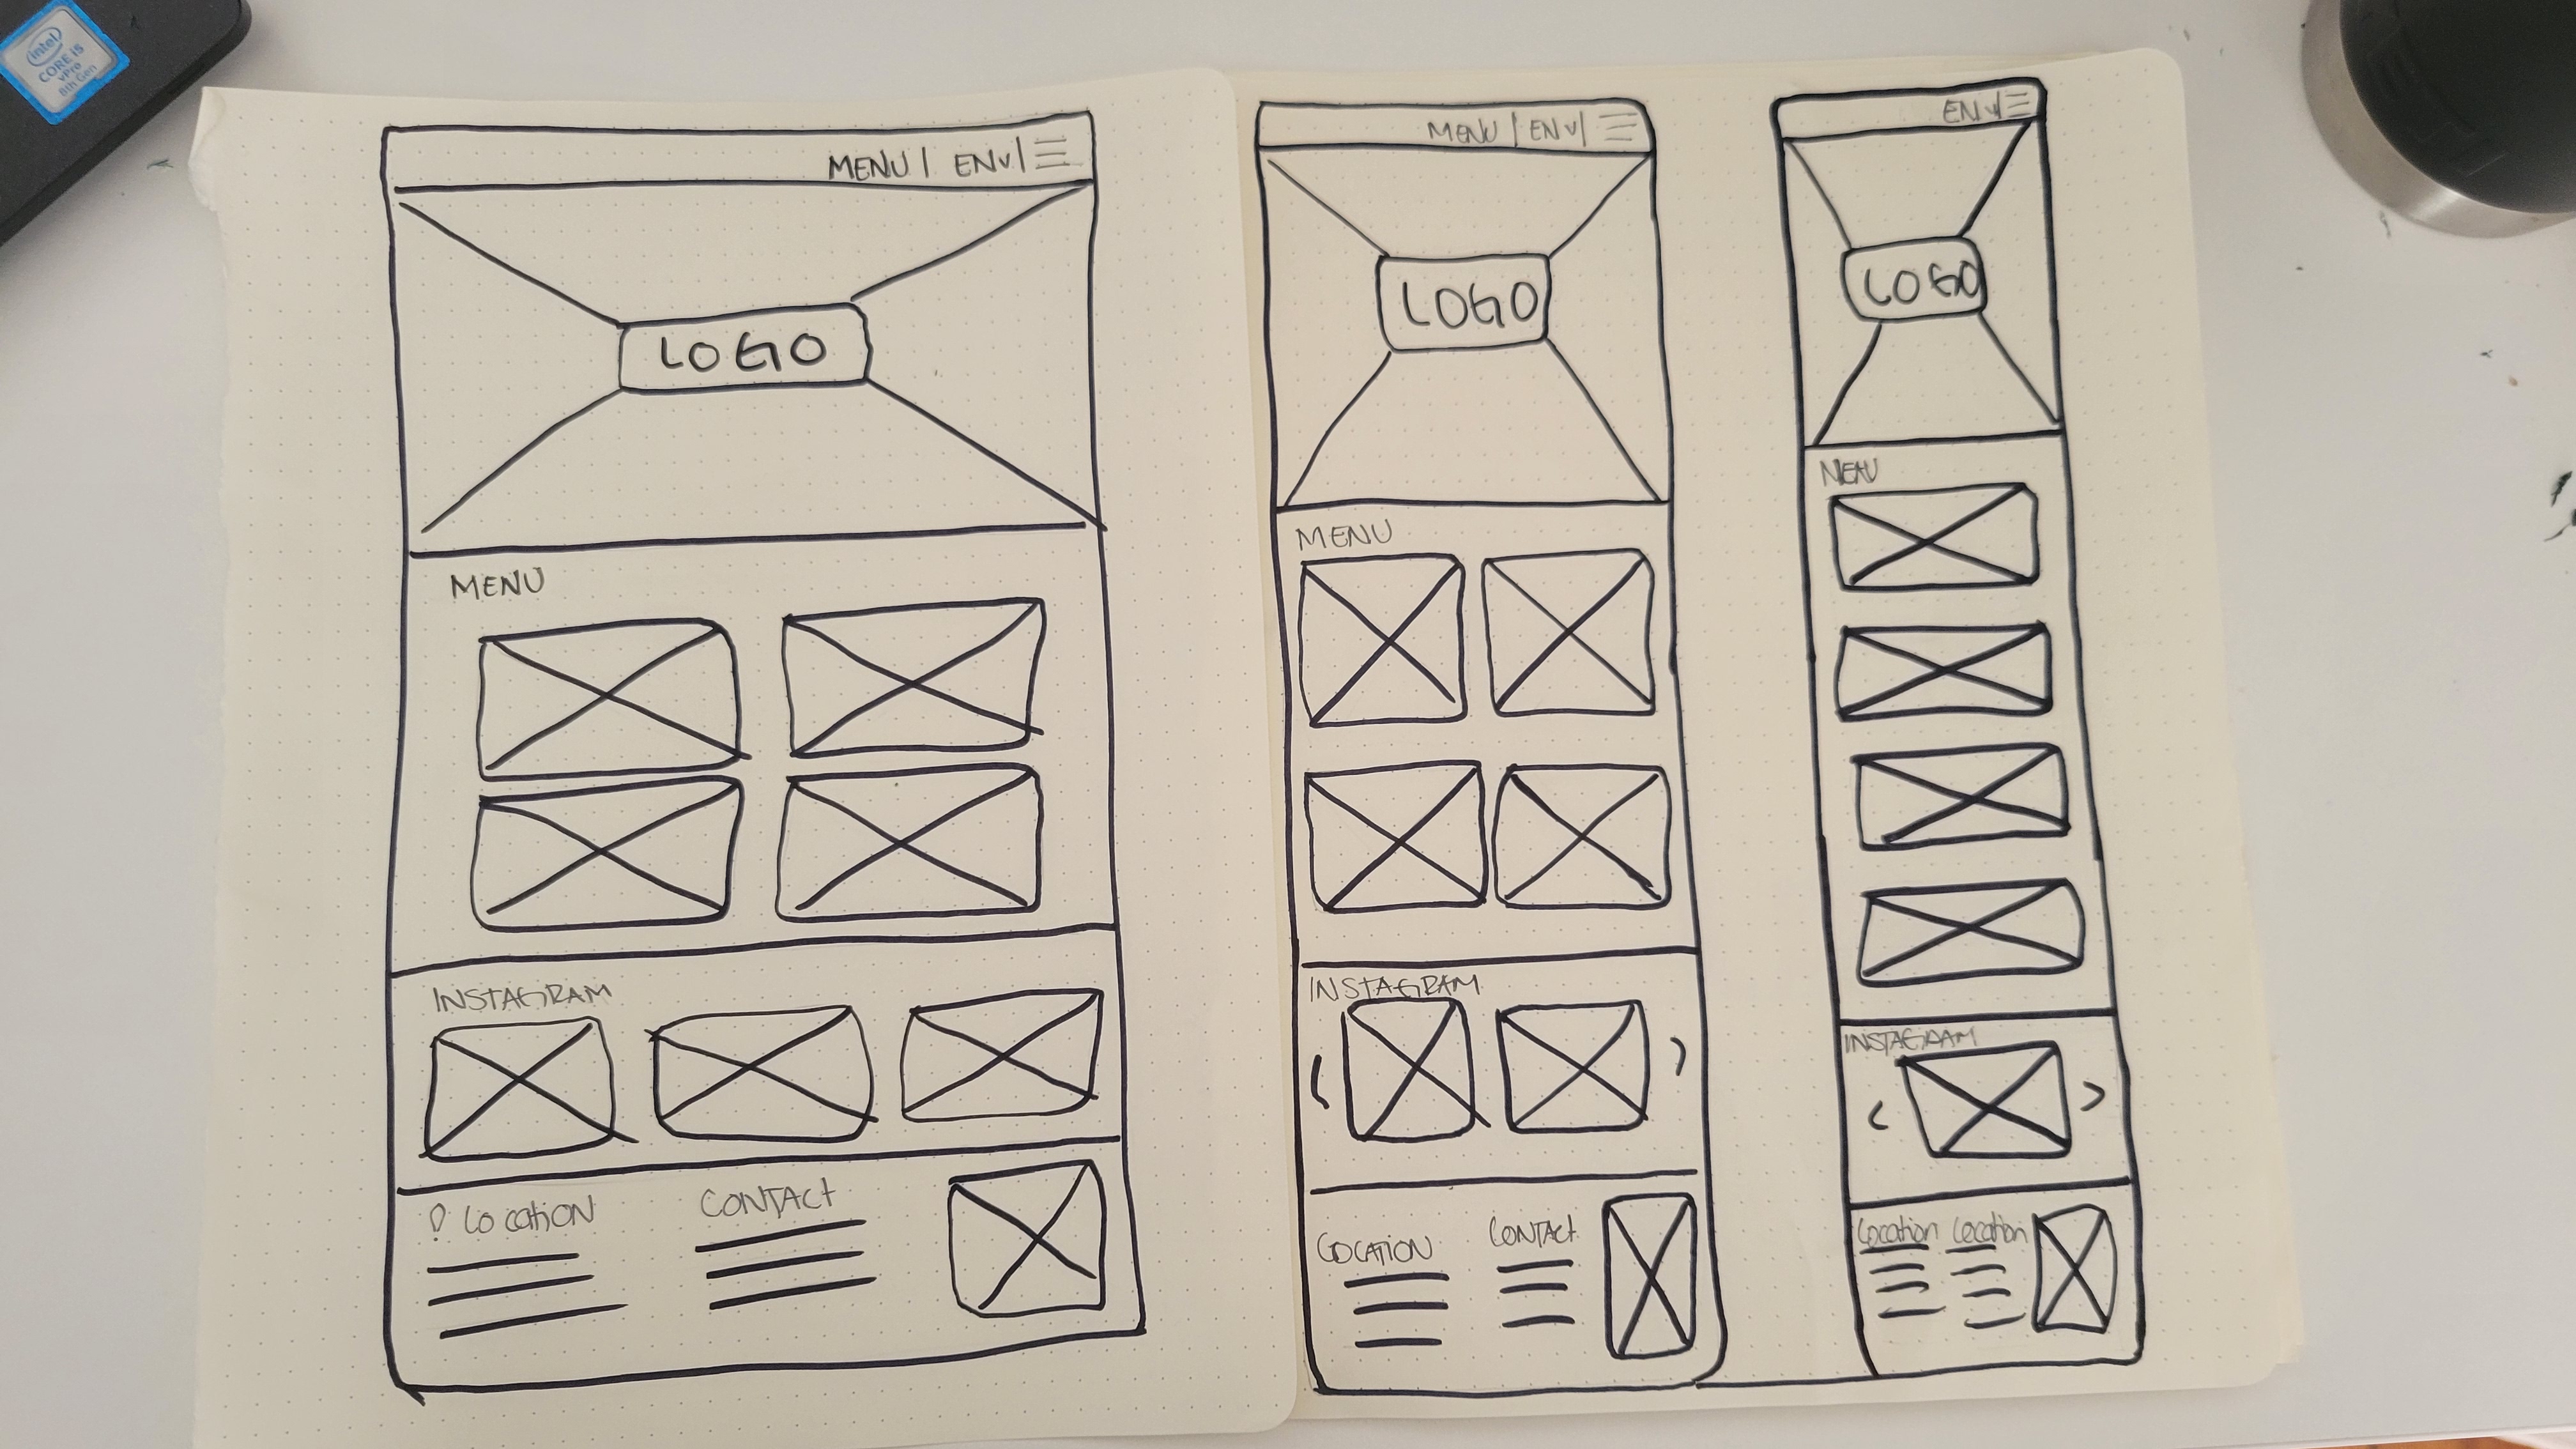 intel
CORE i5
vPro
8th Gen
MENU | EN v | ☰
LOGO
MENU
INSTAGRAM
Location
CONTACT
MENU | EN v | ☰
LOGO
MENU
INSTAGRAM
< >
LOCATION
CONTACT
EN v | ☰
LOGO
MENU
INSTAGRAM
< >
Location Location